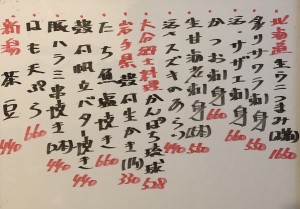 北海道生ウニつまみ(塩水) 1650
タリサワラ刺身 660
活・サザエ刺身 550
かつお刺身 660
生甘海老刺身(2本) 440
活スズキのあらい 550
大分郷土料理かんぱち琉球 528
岩手県殻付生かき(1ヶ) 330
たち魚塩焼き 660
殻付帆立バター焼き 440
豚ハラミ串焼き(2本) 440
はも天ぷら 660
新潟茶豆 440